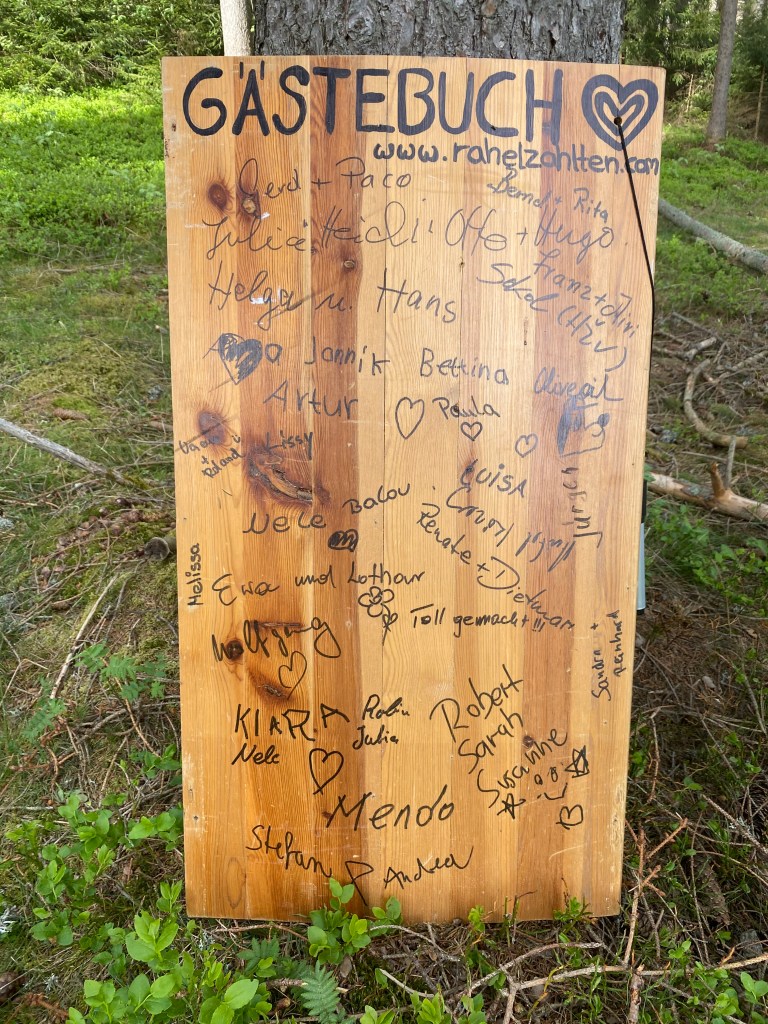 GÄSTEBUCH
www.rahelzahlten.com
Gerd + Paco
Bernd + Rita
Julia, Heidi Otto + Hugo
Helga u. Hans
Franz +
Sokol (HŽV)
Jannik Bettina
Artur
Paula
Lissy
Luisa
Nele Balou
Jürgen
Renate + Dietmar
Melissa
Ewa und Lothar
Toll gemacht!!!
Sandra +
Reinhard
Wolfgang
KlARA Robin
Nele
Julia
Robert
Sarah
Susanne
Mendo
Stefan
Andrea